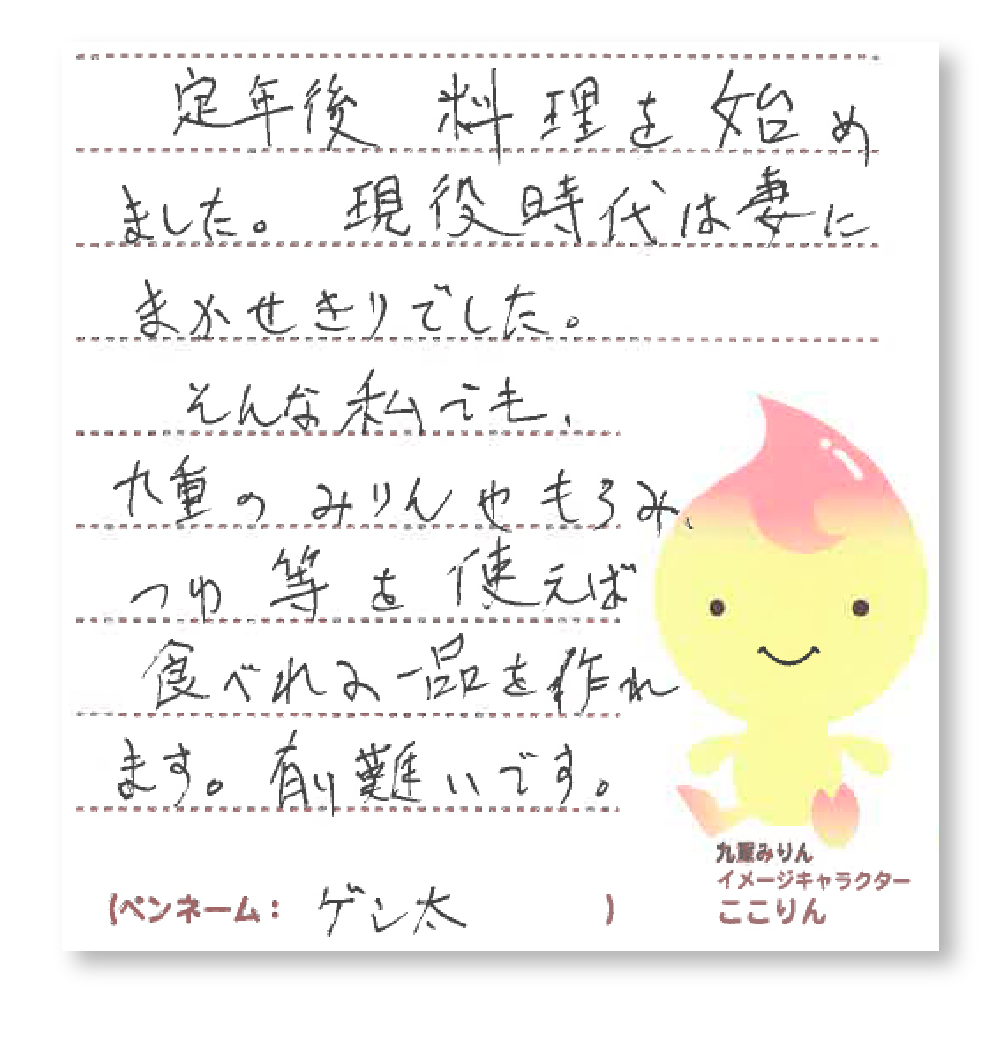 定年後 料理を始め
ました。現役時代は妻に
まかせきりでした。
そんな私でも、
九重のみりんやもろみ、
つゆ等を使えば
食べれる一品を作れ
ます。有り難いです。
(ペンネーム：ゲン太)
九重みりん
イメージキャラクター
ここりん